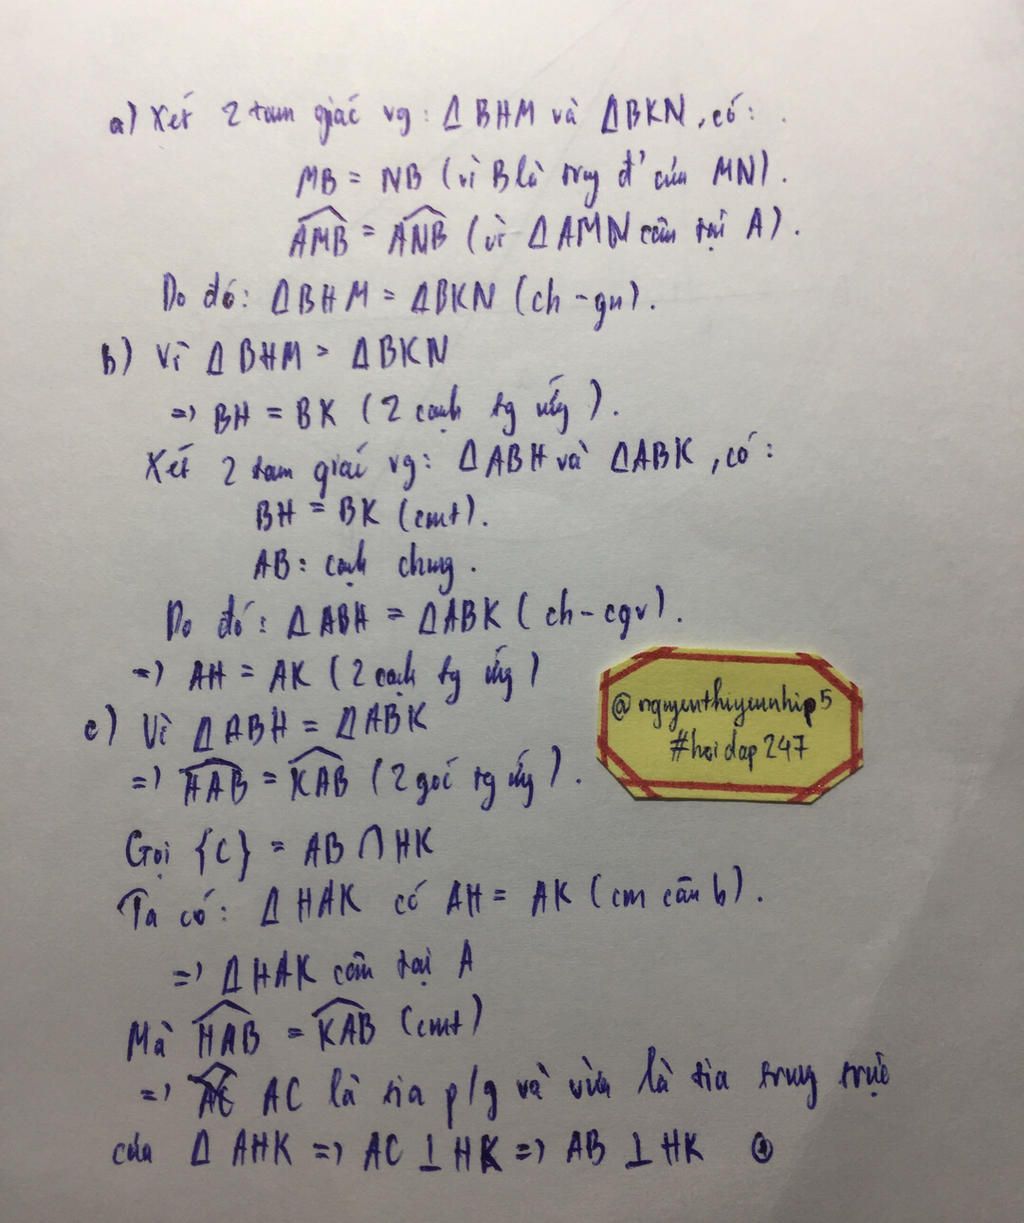 a) Xét 2 tam giác vg: Δ BHM và ΔBKN, có:
MB = NB (vì B là trug đ' của MN).
AMB = ANB (vì ΔAMN cân tại A).
Do đó: ΔBHM = ΔBKN (ch-gn).
b) Vì ΔBHM = ΔBKN
=> BH = BK (2 cạnh tg ứng).
Xét 2 tam giác vg: ΔABH và ΔABK, có:
BH = BK (cmt).
AB: cạnh chung.
Do đó: ΔABH = ΔABK (ch-cgv).
=> AH = AK (2 cạnh tg ứng)
c) Vì ΔABH = ΔABK
=> HAB = KAB (2 góc tg ứng).
@nguyenthiyeunhip5
#hoidap247
Gọi {C} = AB ∩ HK
Ta có: Δ HAK có AH = AK (cm câu b).
=> ΔHAK cân tại A
Mà HAB = KAB (cmt)
=> AC là tia p/g và vừa là tia trung trực
của Δ AHK => AC ⊥ HK => AB ⊥ HK